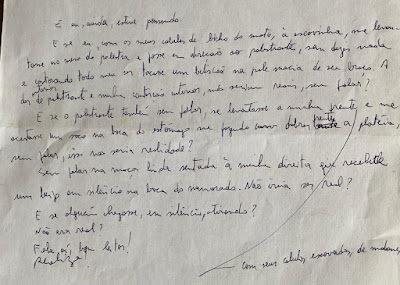 E eu, ainda, estive pensando
E se eu com os meus cabelos de bicho do mato, à escovinha, me levan-
tasse no meio da palestra e fosse em direção ao palestrante, sem dizer nada
e contorcendo todo meu ser tacasse um beliscão na pele macia de seu braço. A
dor do palestrante e minha contorção interior, não seriam reais, sem falar?
E se o palestrante também sem falar, se levantasse a minha frente, e me
acertasse um soco na boca do estômago me fazendo curvar sobre frente a platéia,
sem falar, isso não seria realidade?
Sem falar na moça linda sentada à minha direita que recebeu
um beijo em silêncio na boca do namorado. Não seria real?
E se alguém chegasse, em silêncio, atirando?
Não era real?
Fala, aí, bom leitor!
Realize!
com seus cabelos escovados, de madame,